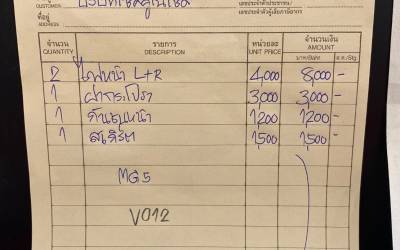 ลูกค้า
CUSTOMER
ที่อยู่
ADDRESS
เลขประจำตัวประชาชน/
เลขประจำตัวผู้เสียภาษีอากร
จำนวน รายการ หน่วยละ จำนวนเงิน
QUANTITY DESCRIPTION UNIT PRICE AMOUNT
บาท/Baht ส.ต./Stg
2 ไฟหน้า L+R 4,000 8,000 -
1 ฝากระโปรง 3,000 3,000 -
1 กันชนหน้า 1200 1200 -
1 1,500 1,500 -
MG5
V012